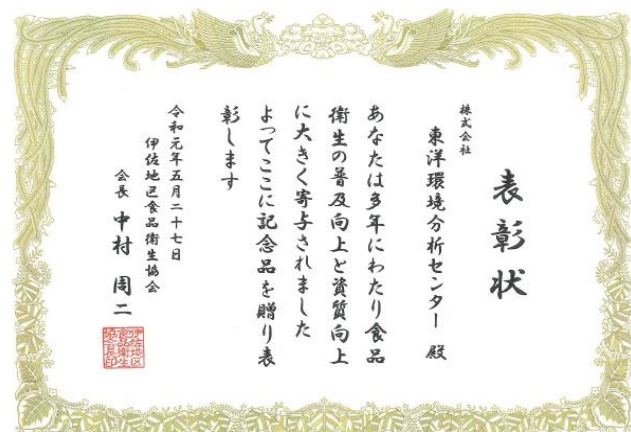 表彰状
株式会社
東洋環境分析センター 殿
あなたは多年にわたり食品
衛生の普及向上と資質向上
に大きく寄与されました
よってここに記念品を贈り表
彰します
令和元年五月二十七日
伊佐地区食品衛生協会
会長 中村 周二